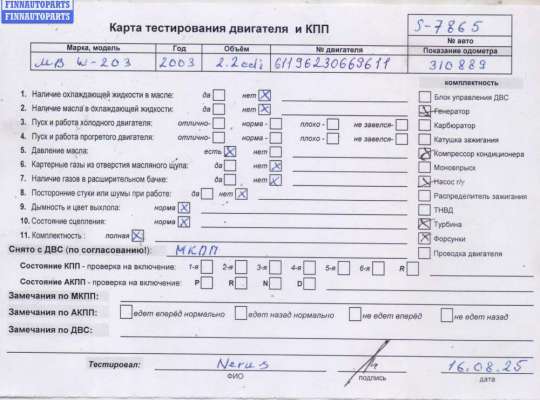 FINNAUTOPARTS
FINNAUTOPARTS
Карта тестирования двигателя и КПП
S-7865
№ авто
Марка, модель Год Объём № двигателя Показание одометра
МВ W-203 2003 2.2cdi 61196230669611 310889
комплектность
1. Наличие охлаждающей жидкости в масле: да нет
2. Наличие масла в охлаждающей жидкости: да нет
3. Пуск и работа холодного двигателя: отлично- норма - плохо - не завелся-
4. Пуск и работа прогретого двигателя: отлично- норма - плохо - не завелся-
5. Давление масла: есть нет
6. Картерные газы из отверстия масляного щупа: да нет
7. Наличие газов в расширительном бачке: да нет
8. Посторонние стуки или шумы при работе: да нет
9. Дымность и цвет выхлопа: норма
10. Состояние сцепления: норма
11. Комплектность : полная
Блок управления ДВС
Генератор
Карбюратор
Катушка зажигания
Компрессор кондиционера
Моновпрыск
Насос г/у
Распределитель зажигания
ТНВД
Турбина
Форсунки
Проводка двигателя
Снято с ДВС (по согласованию!): МКПП
Состояние КПП - проверка на включение: 1-я 2-я 3-я 4-я 5-я 6-я R
Состояние АКПП - проверка на включение: P R N D
Замечания по МКПП:
Замечания по АКПП: едет вперёд нормально едет назад нормально не едет вперёд не едет назад
Замечания по ДВС:
Тестировал: Nerus 16.08.25
ФИО подпись дата